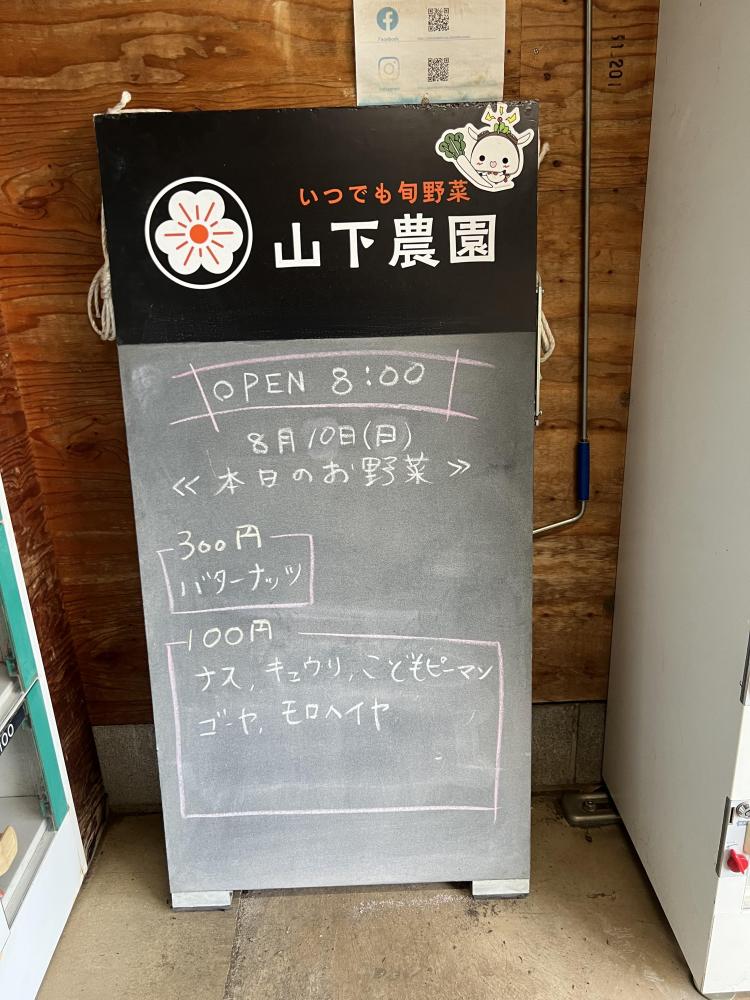 Facebook
Instagram
いつでも旬野菜
山下農園
OPEN 8:00
8月10日(日)
≪本日のお野菜≫
300円
バターナッツ
100円
ナス, キュウリ, こどもピーマン
ゴーヤ, モロヘイヤ